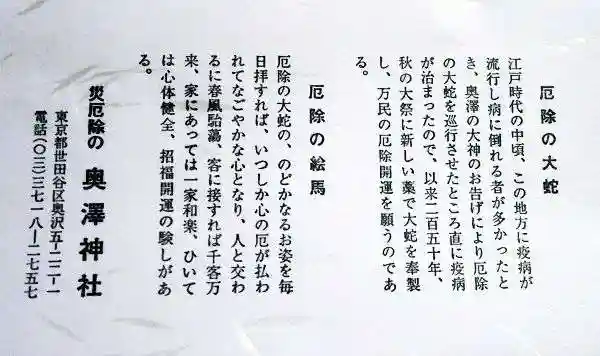 厄除の大蛇
江戸時代の中頃、この地方に疫病が
流行し病に倒れる者が多かったと
き、奥澤の大神のお告げにより厄除
の大蛇を巡行させたところ直に疫病
が治まったので、以来二百五十年、
秋の大祭に新しい藁で大蛇を奉製
し、万民の厄除開運を願うのであ
る。
厄除の絵馬
厄除の大蛇の、のどかなるお姿を毎
日拝すれば、いつしか心の厄が払わ
れてなごやかな心となり、人と交わ
るに春風駘蕩、客に接すれば千客万
来、家にあっては一家和楽、ひいて
は心体健全、招福開運の験しがあ
る。
災厄除の 奥澤神社
東京都世田谷区奥沢五ー二二ー一
電話(〇三)三七一八ー二七五七